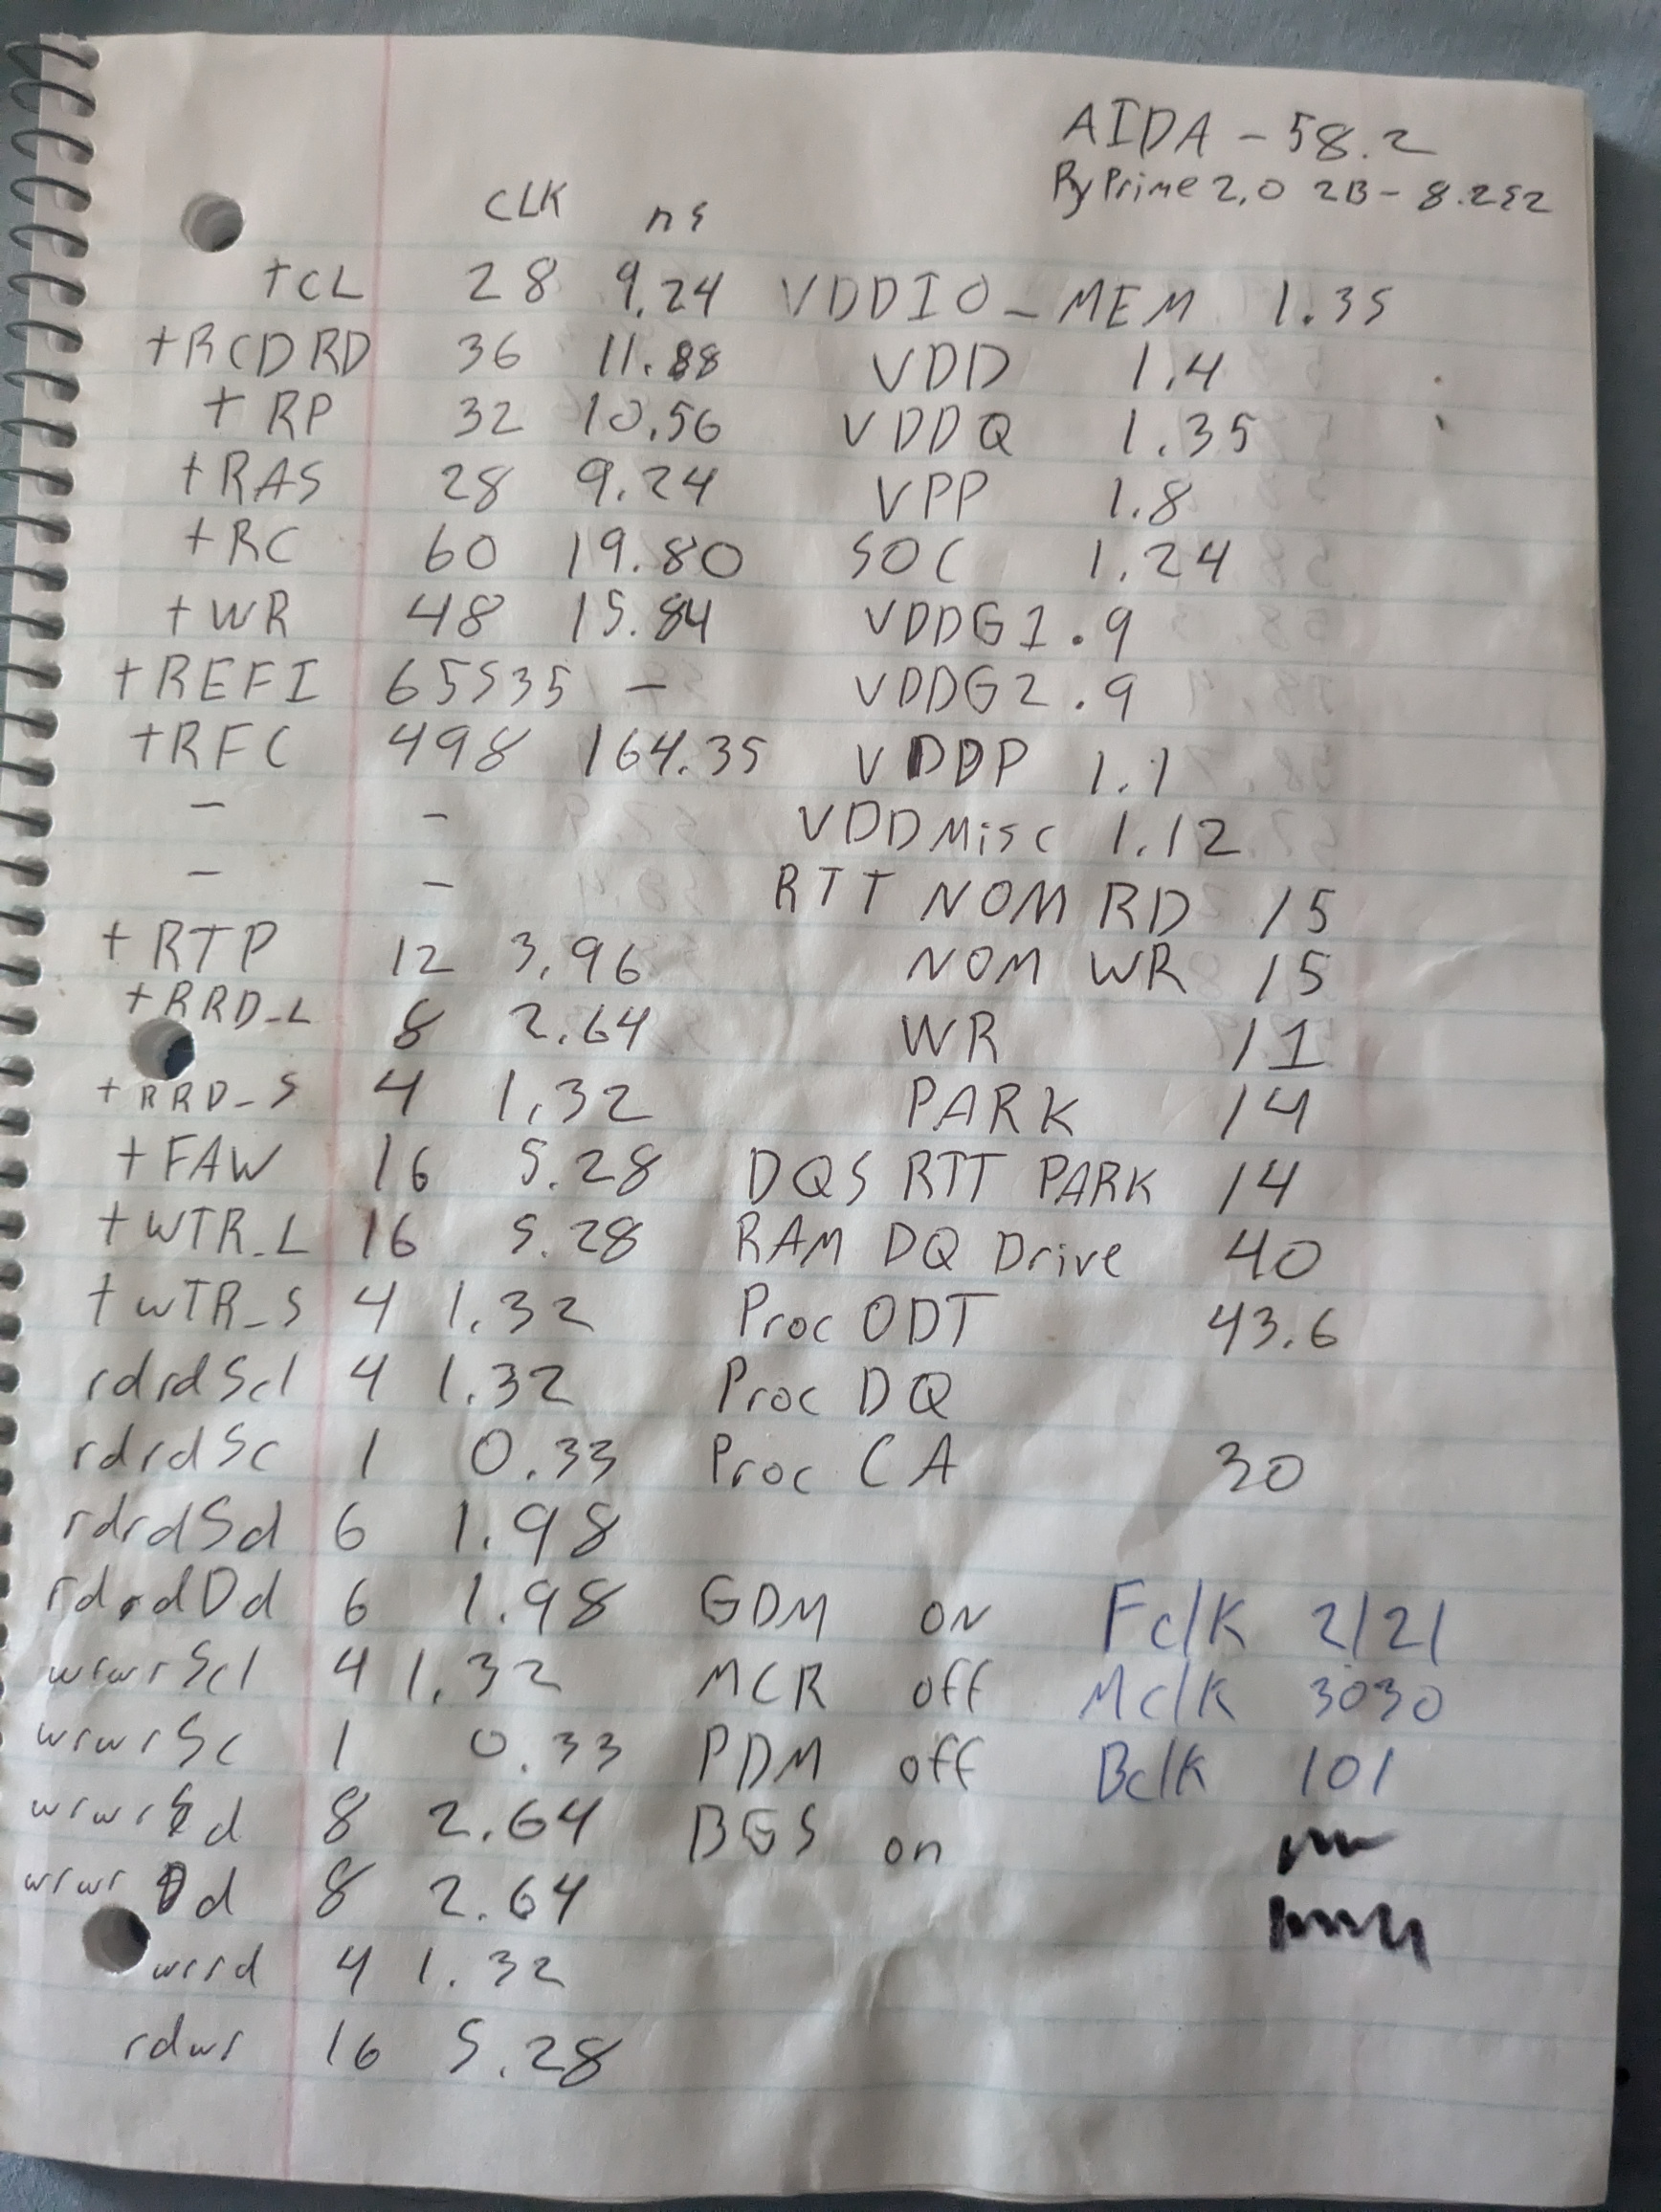 AIDA - 58.2
RyPrime 2.0 2B - 8.252
CLK ns
tCL 28 9.24 VDDIO_MEM 1.35
tRCDRD 36 11.88 VDD 1.4
tRP 32 10.56 VDDQ 1.35
tRAS 28 9.24 VPP 1.8
tRC 60 19.80 SOC 1.24
tWR 48 15.84 VDDG1 .9
tREFI 65535 - VDDG2 .9
tRFC 498 164.35 VDDP 1.1
- - VDDMisc 1.12
- - RTT NOM RD /5
tRTP 12 3.96 NOM WR /5
tRRD_L 8 2.64 WR /1
tRRD_S 4 1.32 PARK /4
tFAW 16 5.28 DQS RTT PARK /4
tWTR_L 16 5.28 RAM DQ Drive 40
tWTR_S 4 1.32 Proc ODT 43.6
rdrdScl 4 1.32 Proc DQ
rdrdSc 1 0.33 Proc CA 30
rdrdSd 6 1.98
rdrdDd 6 1.98 GDM ON Fclk 2121
wrwrScl 4 1.32 MCR off Mclk 3030
wrwrSc 1 0.33 PDM off Bclk 101
wrwrSd 8 2.64 BGS on
wrwrDd 8 2.64
wrrd 4 1.32
rdwr 16 5.28